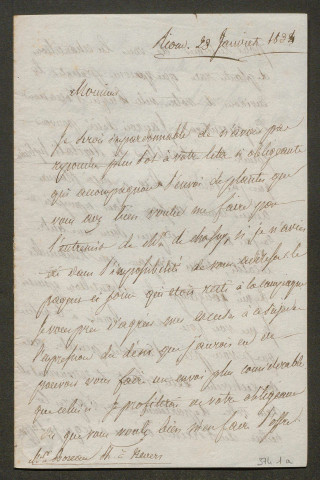 Riom, 23 Janvier 1834
Monsieur
Je serois impardonnable de n'avoir pas
repondu plus tot à votre lettre si obligeante
qui accompagnoit l'envoi de plantes que
vous avez bien voulu me faire par
l'entremise de Mr. de si je n'avois
été dans l'impossibilité de vous le
paquet ci joint qui étoit resté à la campagne
je vous prie d'agréer mes excuses
l'expression du desir que j'aurois eu de
pouvoir vous faire un envoi plus considerable
que celui ci profiter de votre obligeance
et que vous voulez bien m'en faire l'offre
Mr. à